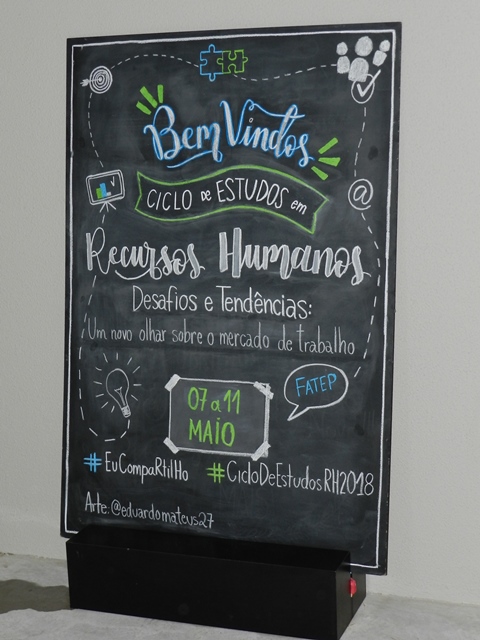 Bem Vindos
CICLO DE ESTUDOS em
Recursos Humanos
Desafios e Tendências:
Um novo olhar sobre o mercado de trabalho
FATEP
07 a 11
MAIO
#EuCompaRtilHo #CicloDeEstudosRH2018
Arte: @eduardomateus27